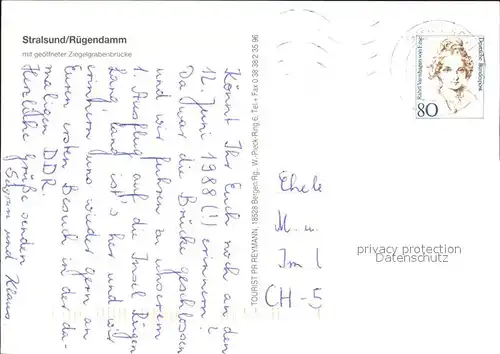 Stralsund/Rügendamm
mit geöffneter Ziegelgrabenbrücke
Könnt Ihr Euch noch an den
12. Juni 1988 (!) erinnern?
Da war die Brücke geschlossen
und wir fuhren zu unserem
1. Ausflug auf die Insel Rügen
Lang, lang ist's her und wir
erinnern uns wieder gern an
Euren ersten Besuch in der da-
maligen DDR.
Herzliche Grüße senden
und Klaus.
TOURIST PR REYMANN, 18528 Bergen Rg., W.-Pieck-Ring 6, Tel.+ Fax 0 38 38 2 35 96
Deutsche Bundespost
Rahel Varnhagen von Ense
80
Ehele
M. u.
Im
CH-5
privacy protection
Datenschutz